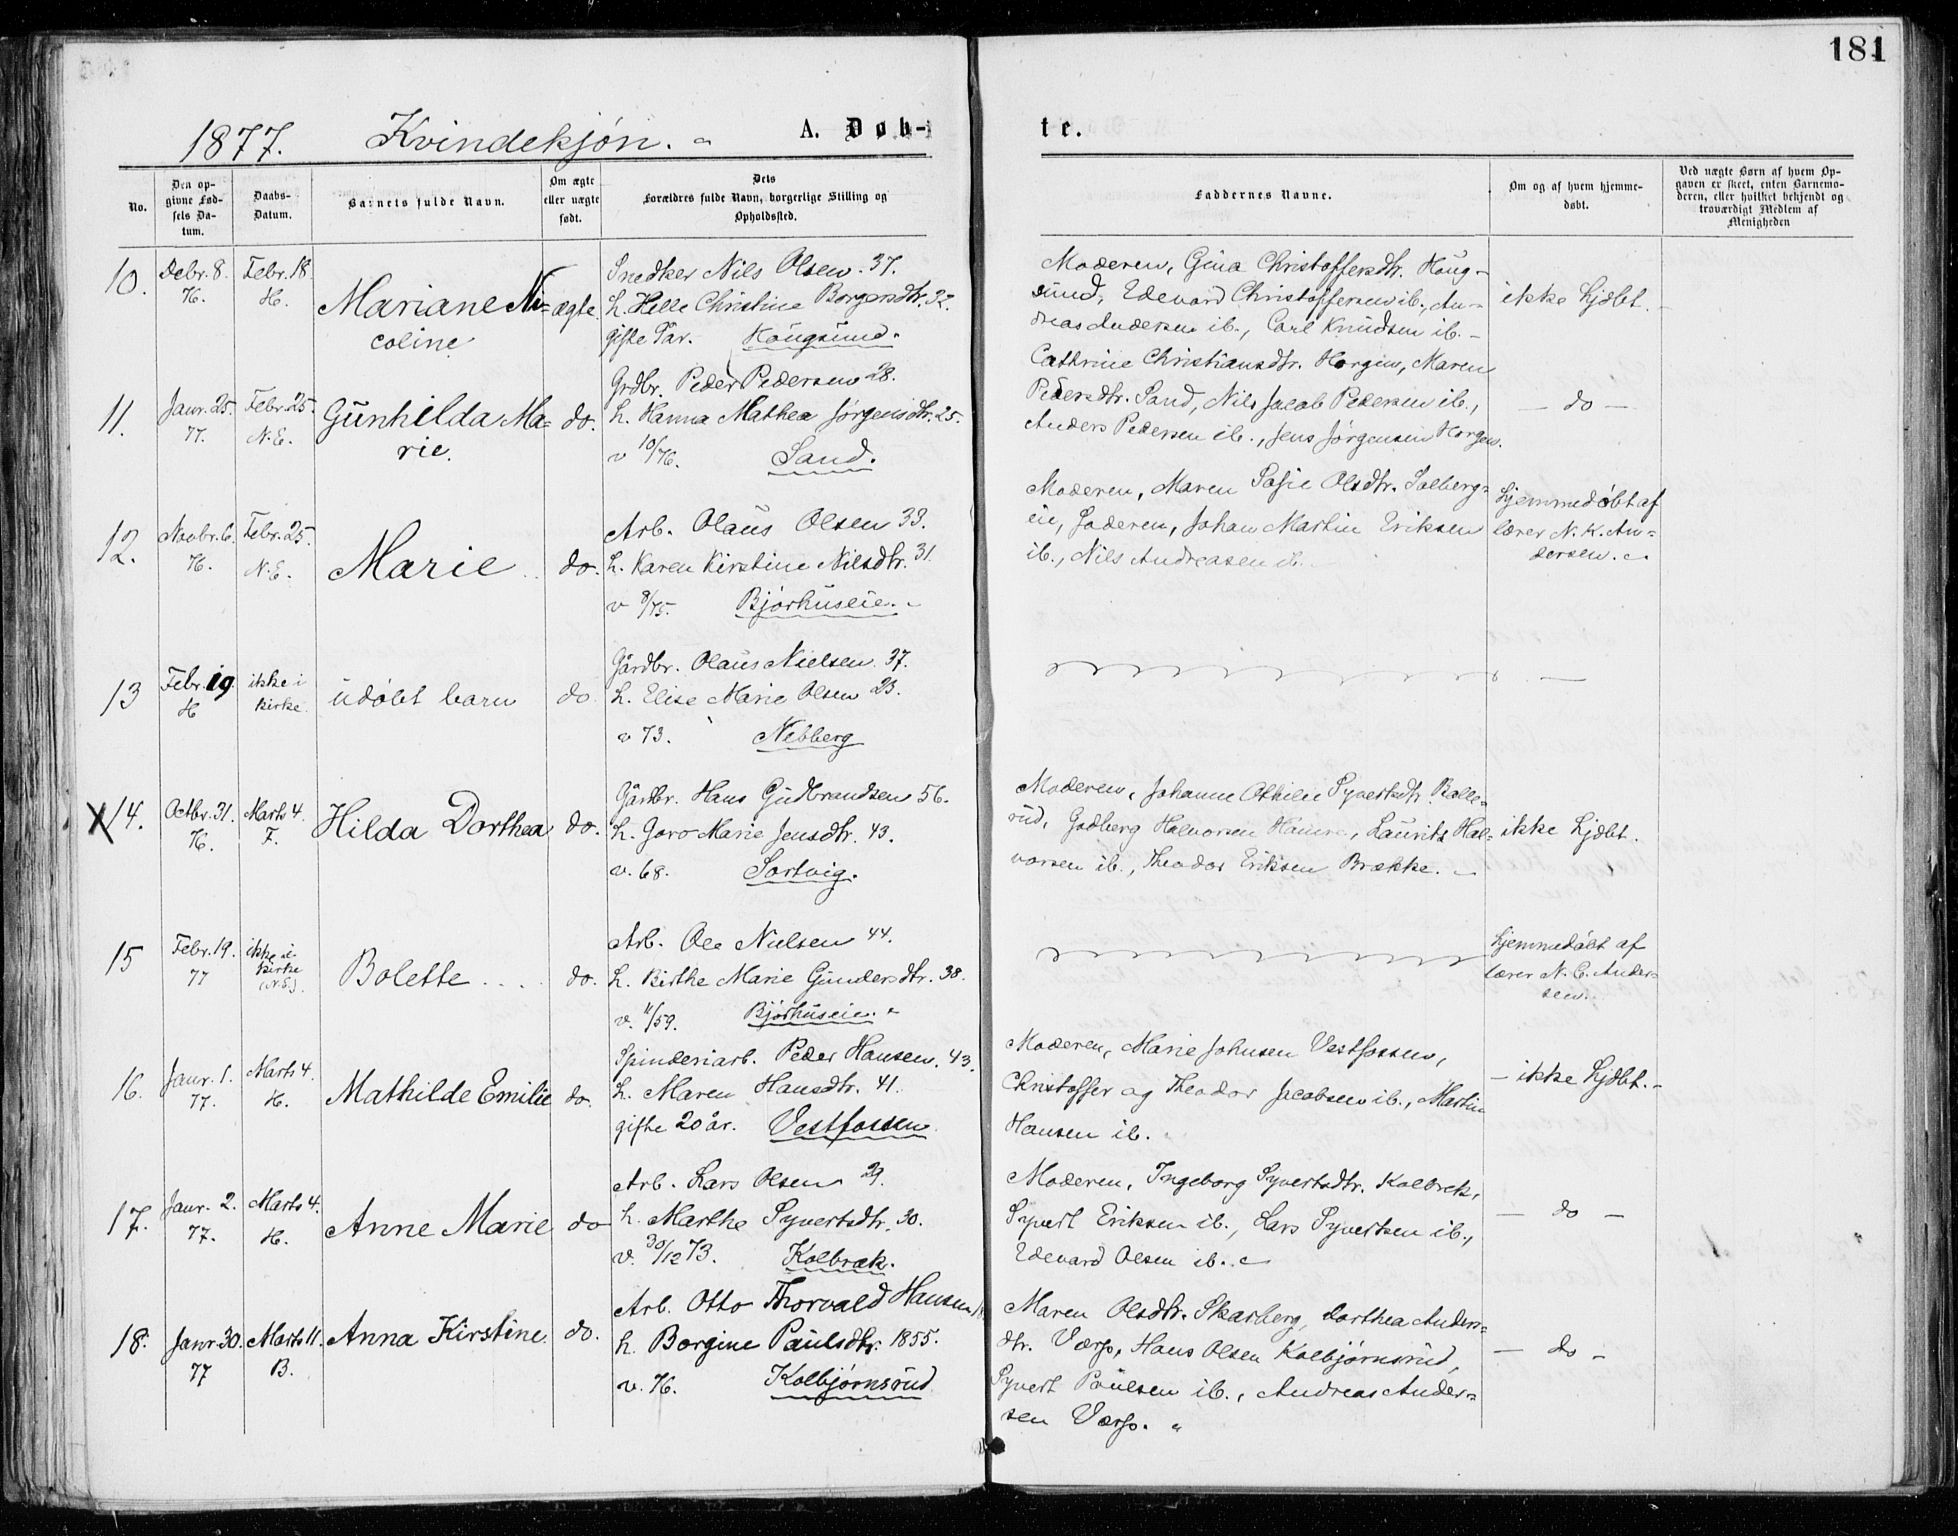 181
1877. Kvindekjøn.
A. Døb-
te.
No.
Den op-
givne Fød-
sels Da-
tum.
Daabs-
Datum.
Barnets fulde Navn.
Om ægte
eller uægte
født.
Dets
Forældres fulde Navn, borgerlige Stilling og
Opholdssted.
Faddernes Navne.
Om og af hvem hjemme-
døbt.
Ved uægte Børn af hvem Op-
gaven er skeet, enten Barnemo-
deren, eller hvilket bekjendt og
troværdigt Medlem af
Menigheden
10.
Debr. 8.
76.
Febr. 18.
H.
Mariane Ni-
coline
ægte.
Snedker Nils Olsen. 37.
h. Helle Christine Borgersdtr. 32.
gifte Par. Hougsund.
Moderen, Gina Christoffersdtr. Houg-
sund, Edevard Christoffersen ib., An-
dreas Andersen ib., Carl Knudsen ib. -
ikke hjdbt.
11.
Janr. 25.
77.
Febr. 25.
N.E.
Gunhilda Ma-
rie.
do.
Grdbr. Peder Pedersen 28.
h. Hanna Mathea Jørgensdtr. 25.
v 10/76. Sand.
Cathrine Christiansdtr. Horgen, Maren
Pedersdtr. Sand, Nils Jacob Pedersen ib.,
Anders Pedersen ib., Jens Jørgensen Horgen.
- do -
12.
Novbr. 6.
76.
Febr. 25.
N.E.
Marie
do.
Arb. Olaus Olsen 33.
h. Karen Kirstine Nilsdtr. 31.
v 8/75. Bjørhuseie.
Moderen, Maren Sofie Olsdtr. Solberg-
eie, Faderen, Johan Martin Eriksen
ib., Nils Andreasen ib.
hjemmedøbt af
lærer N. K. An-
dersen.
13
Febr. 19.
H
ikke i
kirke.
udøbt barn
do.
Gårdbr. Olaus Nielsen 37.
h. Elise Marie Olsen 23.
v 73. Nebberg
X14.
Octbr. 31.
76.
Marts 4.
F.
Hilda Dorthea
do.
Gårdbr. Hans Gudbrandsen 56.
h. Goro Marie Jensdtr. 43.
v. 68. Sortvig.
Moderen, Johanne Othilie Syvertsdtr. Bolle-
rud, Gudberg Halvorsen, Laurits Hal-
vorsen ib., Theodor Eriksen Brække.
ikke hjdbt.
15
Febr. 19.
77
ikke i
kirke
(N.E.)
Bolette
do.
Arb. Ole Nielsen 44.
h. Birthe Marie Gundersdtr. 38.
v. 11/59. Bjørhuseie.
hjemmedøbt af
lærer N. C. Ander-
sen.
16.
Janr. 1.
77.
Marts 4.
H.
Mathilde Emilie
do.
Spinderiarb. Peder Hansen. 43.
h. Maren Hansdtr. 41.
gifte 20 år. Vestfossen
Moderen, Marie Johnsen Vestfossen,
Christoffer og Theodor Jacobsen ib., Martin
Hansen ib.
- ikke hjdbt. -
17.
Janr. 2.
77.
Marts 4.
H.
Anne Marie
do
Arb. Lars Olsen 29.
h. Marthe Syvertsdtr. 30.
v. 30/12 73. Kolbræk.
Moderen, Ingeborg Syvertsdtr. Kolbrek,
Syvert Eriksen ib., Lars Syvertsen ib.,
Edevard Olsen ib.
- do -
18.
Janr. 30.
77
Marts 11.
B.
Anna Kirstine
do.
Arb. Otto Thorvald Hansen
h. Borgine Paulsdtr. 1855.
v. 76. Kolbjørnsrud
Maren Olsdtr. Skarberg, Dorthea Anders-
dtr. Værp, Hans Olsen Kolbjørnsrud,
Syvert Paulsen ib., Andreas Ander-
sen Værp.
- do -